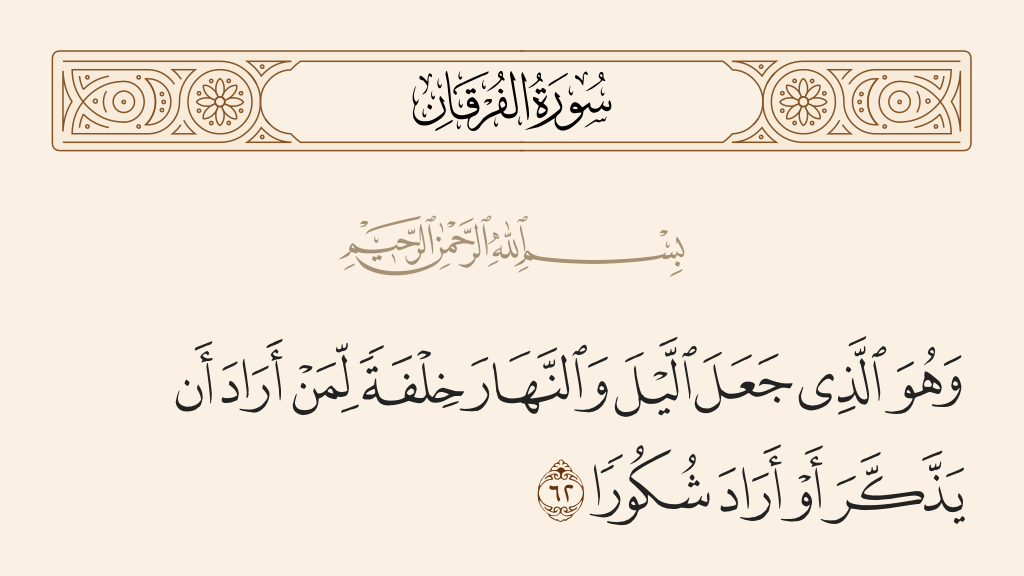 سُورَةُ الفُرْقَانِ
بِسْمِ ٱللَّهِ ٱلرَّحْمَٰنِ ٱلرَّحِيمِ
وَهُوَ ٱلَّذِى جَعَلَ ٱلَّيْلَ وَٱلنَّهَارَ خِلْفَةً لِّمَنْ أَرَادَ أَن
يَذَّكَّرَ أَوْ أَرَادَ شُكُورًا ٦٢